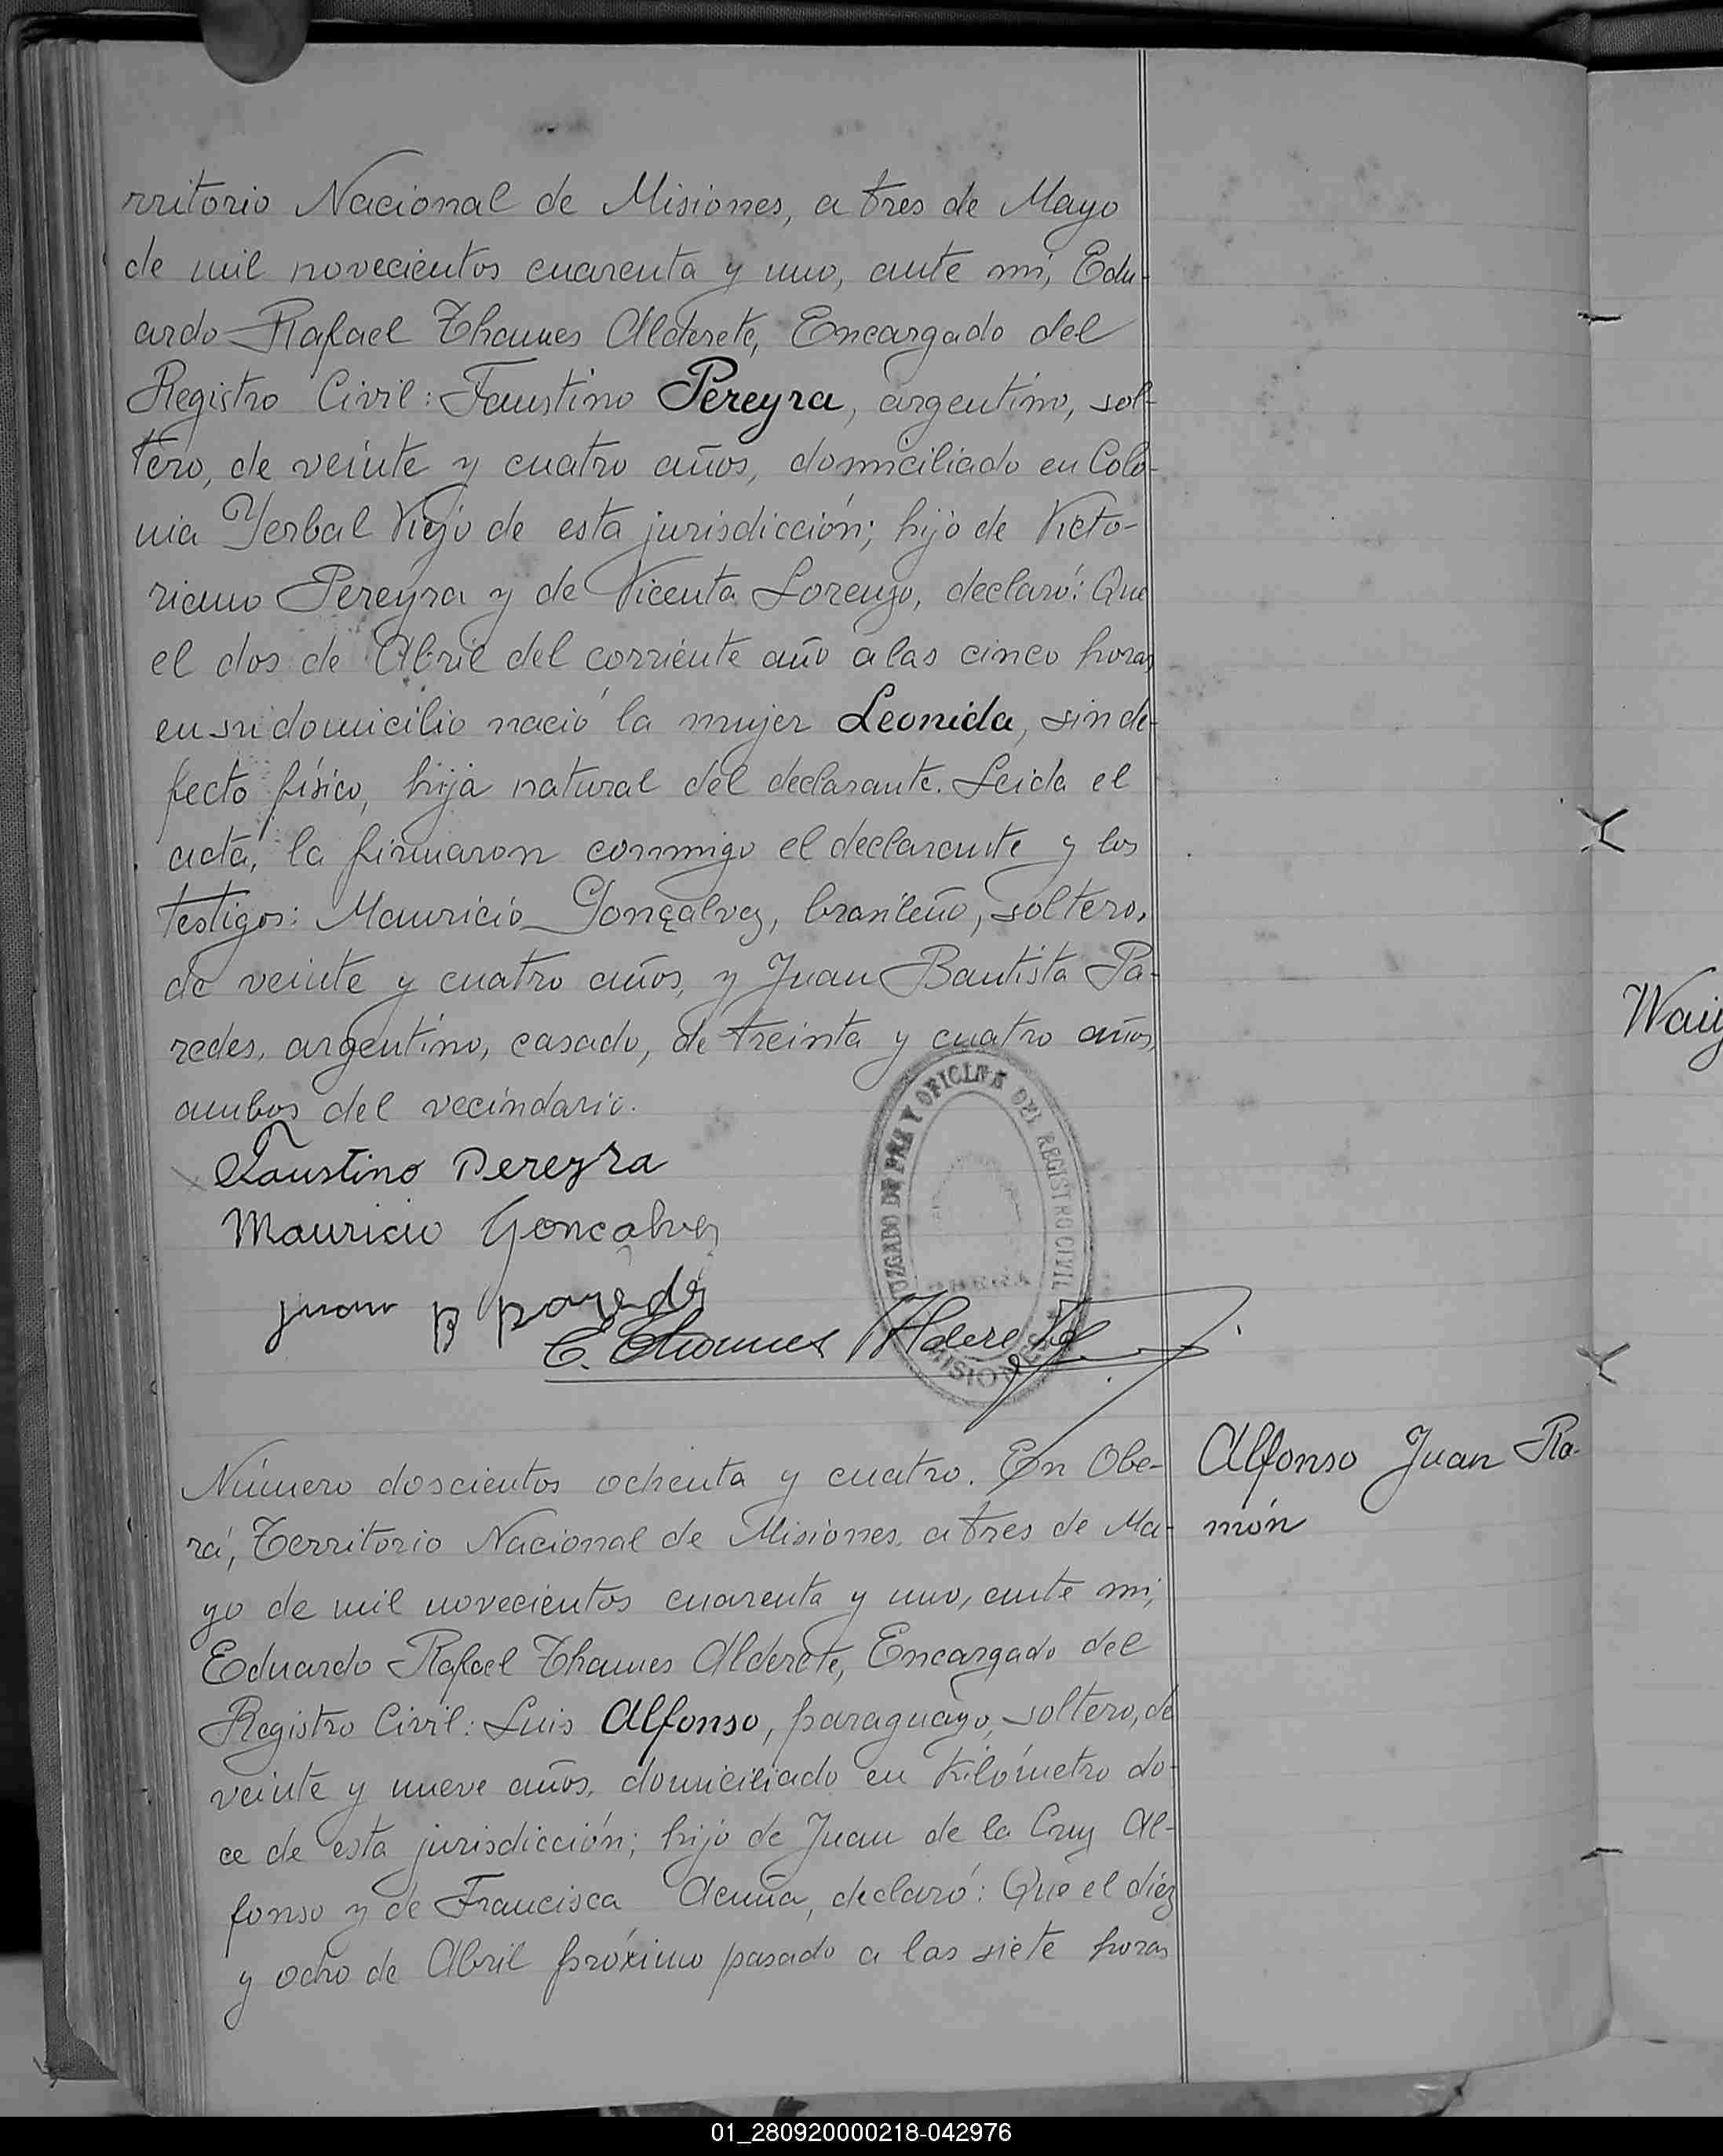 rritorio Nacional de Misiones, a tres de Mayo
de mil novecientos cuarenta y uno, ante mí, Edu-
ardo Rafael Thames Alderete, Encargado del
Registro Civil: Faustino Pereyra, argentino, sol-
tero, de veinte y cuatro años, domiciliado en Colo-
nia Yerbal Viejo de esta jurisdicción; hijo de Victo-
riano Pereyra y de Vicenta Lorenzo, declaró: Que
el dos de Abril del corriente año a las cinco horas
en su domicilio nació la mujer Leonida, sin de-
fecto físico, hija natural del declarante. Leida el
acta, la firmaron conmigo el declarante y los
testigos: Mauricio Gonçalvez, brasileño, soltero,
de veinte y cuatro años, y Juan Bautista Pa-
redes, argentino, casado, de treinta y cuatro años,
ambos del vecindario.
Faustino Pereyra
Mauricio Gonçalvez
juan B paredes
E. Thames Alderete
JUZGADO DE PAZ Y OFICINA DEL REGISTRO CIVIL
OBERÁ
MISIONES
Número doscientos ochenta y cuatro. En Obe-
rá, Territorio Nacional de Misiones, a tres de Ma-
yo de mil novecientos cuarenta y uno, ante mí,
Eduardo Rafael Thames Alderete, Encargado del
Registro Civil: Luis Alfonso, paraguayo, soltero, de
veinte y nueve años, domiciliado en Kilómetro do-
ce de esta jurisdicción; hijo de Juan de la Cruz Al-
fonso y de Francisca Acuña, declaró: Que el diez
y ocho de Abril próximo pasado a las siete horas
Alfonso Juan Ra-
món
01_280920000218-042976